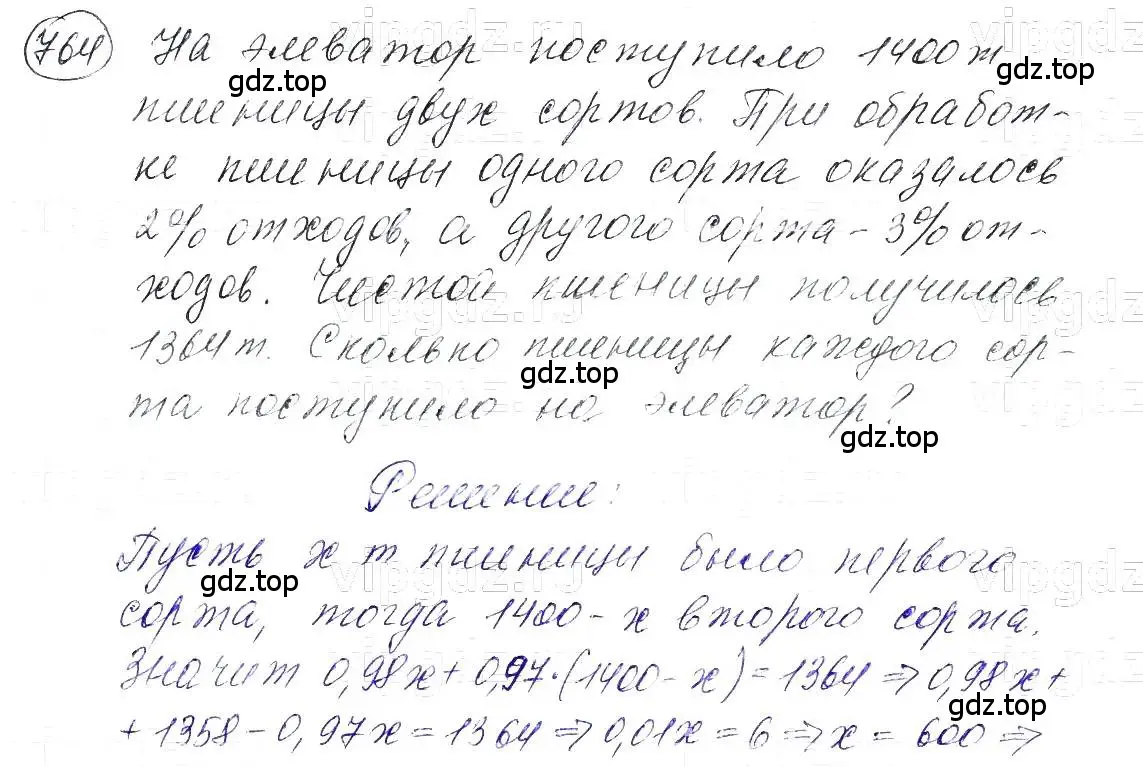 764 На элеватор поступило 1400 т
gdz.top
gdz.top
пшеницы двух сортов. При обработ-
ке пшеницы одного сорта оказалось
2% отходов, а другого сорта - 3% от-
ходов. Чистой пшеницы получилось
1364 т. Сколько пшеницы каждого сор-
gdz.top
та поступило на элеватор?
gdz.top
Решение:
Пусть x т пшеницы было первого
gdz.top
сорта, тогда 1400 - x второго сорта.
Значит 0,98x + 0,97·(1400 - x) = 1364 ⇒ 0,98x +
gdz.top
+ 1358 - 0,97x = 1364 ⇒ 0,01x = 6 ⇒ x = 600 ⇒